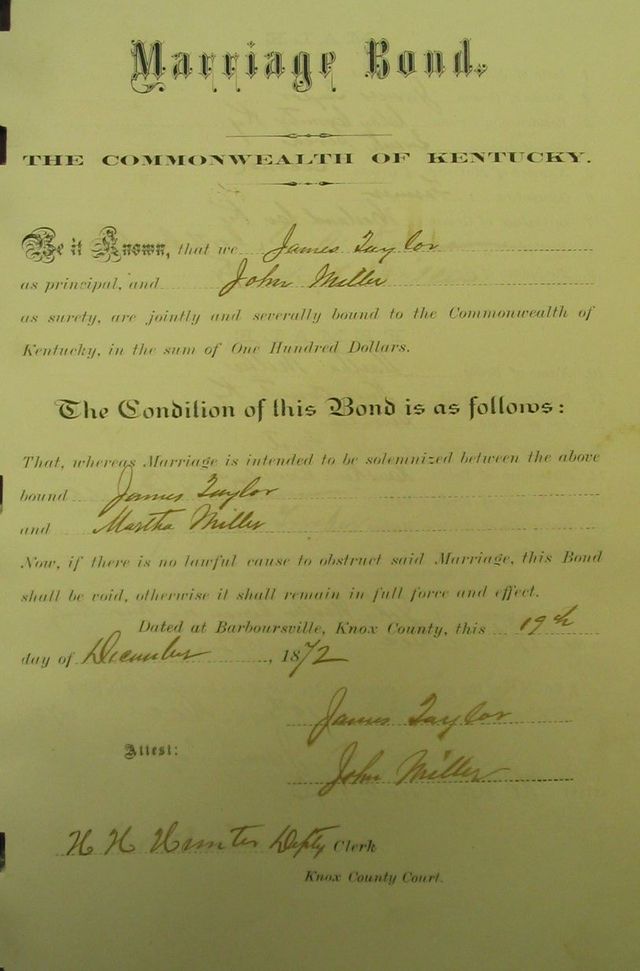 Marriage Bond.
THE COMMONWEALTH OF KENTUCKY.
Be it Known, that we James Taylor
as principal, and John Miller
as surety, are jointly and severally bound to the Commonwealth of
Kentucky, in the sum of One Hundred Dollars.
The Condition of this Bond is as follows:
That, whereas Marriage is intended to be solemnized between the above
bound James Taylor
and Martha Miller
Now, if there is no lawful cause to obstruct said Marriage, this Bond
shall be void, otherwise it shall remain in full force and effect.
Dated at Barboursville, Knox County, this 19th
day of December, 1872
James Taylor
Attest:
John Miller
H H Hunter Depty Clerk
Knox County Court.